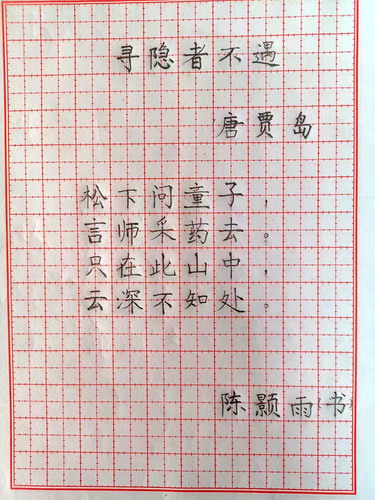 寻隐者不遇
唐贾岛
松下问童子，
言师采药去。
只在此山中，
云深不知处。
陈颢雨(书)